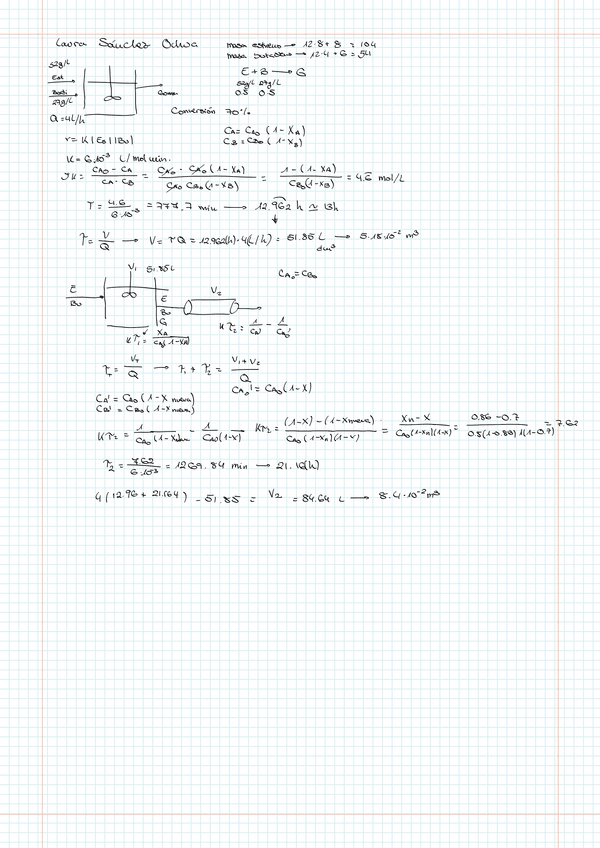 Laura Sánchez Ochoa
masa estireno → 12·8 + 8 = 104
masa butadieno → 12·4 + 6 = 54
52g/L
Est
Buta
27g/L
Goma
Q = 4L/h
E + B → G
52g/L 27g/L
0.5 0.5
Conversión 70%
r = K |E0||B0|
CA = CA0 (1 - XA)
CB = CB0 (1 - XB)
K = 6·10⁻³ L/mol·min.
τK = (CA0 - CA)/(CA·CB) = (CA0 - CA0(1 - XA))/(CA0 CB0 (1 - XB)) = (1 - (1 - XA))/(CB0 (1 - XB)) = 4.6 mol/L
τ = 4.6/6·10⁻³ = 777,7 min → 12.962 h ≃ 13h
τ = V/Q → V = τQ = 12.962(h)·4(L/h) = 51.85 L → 5.18·10⁻² m³
dm³
V1 51.85L
CA0 = CB0
E
B0
E
B0
G
V2
Kτ1 = XA/(CA0 (1 - XA))
Kτ2 = 1/CA' - 1/CA0'
τT = VT/Q → τ1 + τ2 = (V1 + V2)/Q
CA0' = CA0 (1 - X)
CA' = CA0 (1 - X nueva)
CB' = CB0 (1 - X nueva)
Kτ2 = 1/(CA0 (1 - Xn)) - 1/(CA0 (1 - X)) Kτ2 = ((1 - X) - (1 - Xnueva))/(CA0 (1 - Xn)(1 - X)) = (Xn - X)/(CA0 (1 - Xn)(1 - X)) = (0.86 - 0.7)/(0.5(1 - 0.86)(1 - 0.7)) = 7.62
τ2 = 7.62/6·10⁻³ = 1269.84 min → 21.16(h)
4 (12.96 + 21.164) - 51.85 = V2 = 84.64 L → 8.4·10⁻² m³